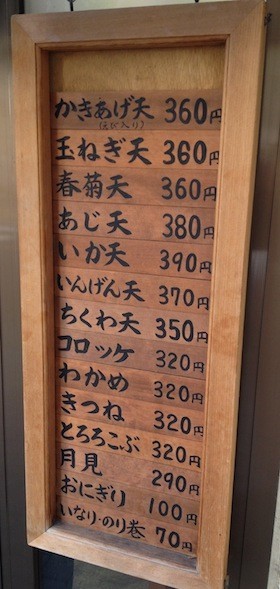 かきあげ天 360円
(えび入り)
玉ねぎ天 360円
春菊天 360円
あじ天 380円
いか天 390円
いんげん天 370円
ちくわ天 350円
コロッケ 320円
わかめ 320円
きつね 320円
とろろこぶ 320円
月見 290円
おにぎり 100円
いなり・のり巻 70円